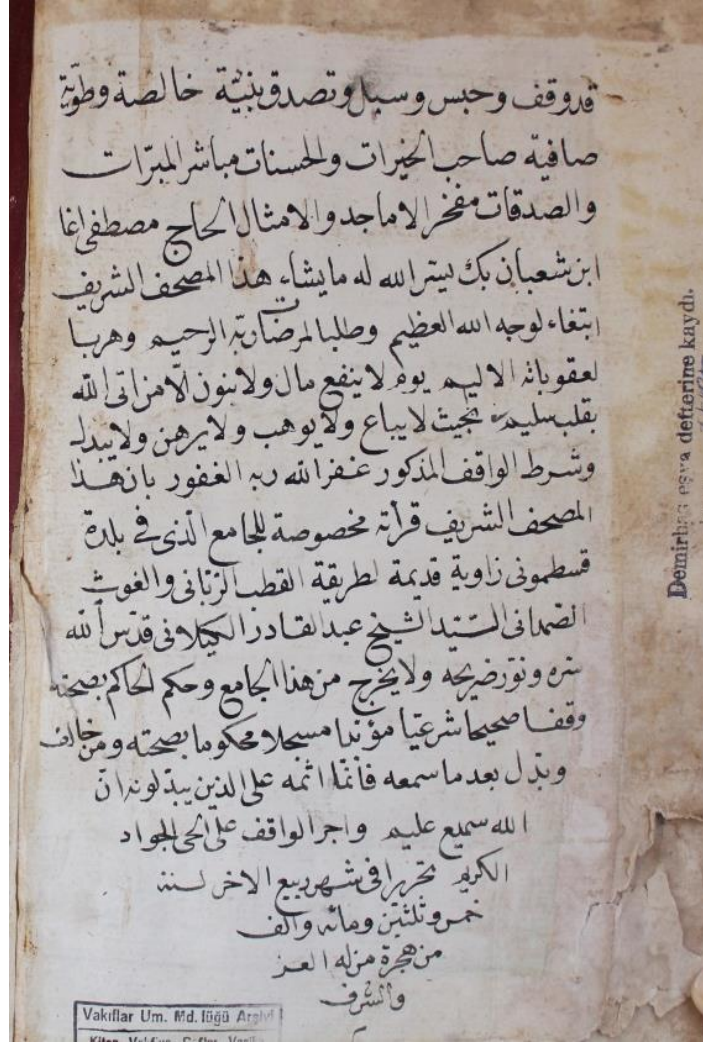 قد وقف وحبس وسبل وتصدق بنيّة خالصة وطويّة
صافية صاحب الخيرات والحسنات مباشر المبرّات
والصدقات مفخر الاماجد والامثال الحاج مصطفى اغا
ابن شعبان بك يسّر الله له ما يشاء هذا المصحف الشريف
ابتغاء لوجه الله العظيم وطلبا لمرضات ربّه الرحيم وهربا
لعقوباته الاليم يوم لا ينفع مال ولا بنون الّا من اتى الله
بقلب سليم بحيث لا يباع ولا يوهب ولا يرهن ولا يبدل
وشرط الواقف المذكور غفر الله ربه الغفور بان هذا
المصحف الشريف قرأته مخصوصة للجامع الّذى فى بلدة
قسطمونى زاوية قديمة لطريقة القطب الربّانى والغوث
الصمدانى السّيّد الشيخ عبد القادر الكيلانى قدّس الله
سره ونوّر ضريحه ولا يخرج من هذا الجامع وحكم الحاكم بصحته
وقفا صحيحا شرعيّا مؤبدا مسجلا محكوما بصحته ومن خالف
وبدّل بعد ما سمعه فانّما اثمه على الذين يبدّلونه انّ
الله سميع عليم واجر الواقف على الحى الجواد
الكريم تحريرا فى شهر ربيع الاخر لسنة
خمس وثلثين ومائه والف
من هجرة من له العز
والشرف
Demirbaş eşya defterine kaydı.
Vakıflar Um. Md. lüğü Arşivi